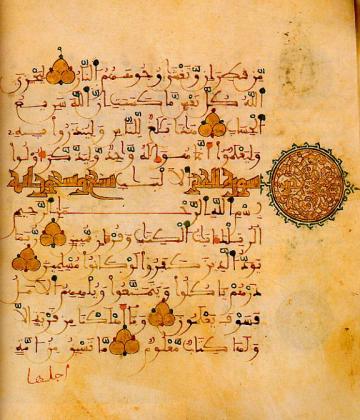 من قطران وتغشى وجوههم النار ليجزي
الله كل نفس ما كسبت ان الله سريع
الحساب هذا بلغ للناس ولينذروا به
وليعلموا انما هو اله وحد وليذكر اولوا
سورة الحجر الالبب
بسم الله الرحمن الرحيم
الر تلك ايت الكتب وقرءان مبين ربما
يود الذين كفروا لو كانوا مسلمين
ذرهم ياكلوا ويتمتعوا ويلههم الامل
فسوف يعلمون وما اهلكنا من قرية الا
ولها كتاب معلوم ما تسبق من امة
اجلها